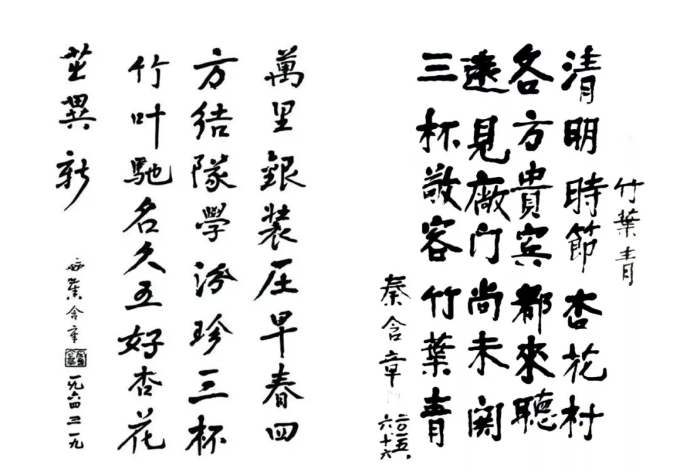 竹葉青
清明時節杏花村
各方貴賓都來聽
遠見廠门尚未関
三杯敬客竹葉青
秦含章
二〇一五、六、十六
萬里銀装压早春四
方结隊學汾珍三杯
竹叶馳名久五好杏花
異新
含章
一九六四